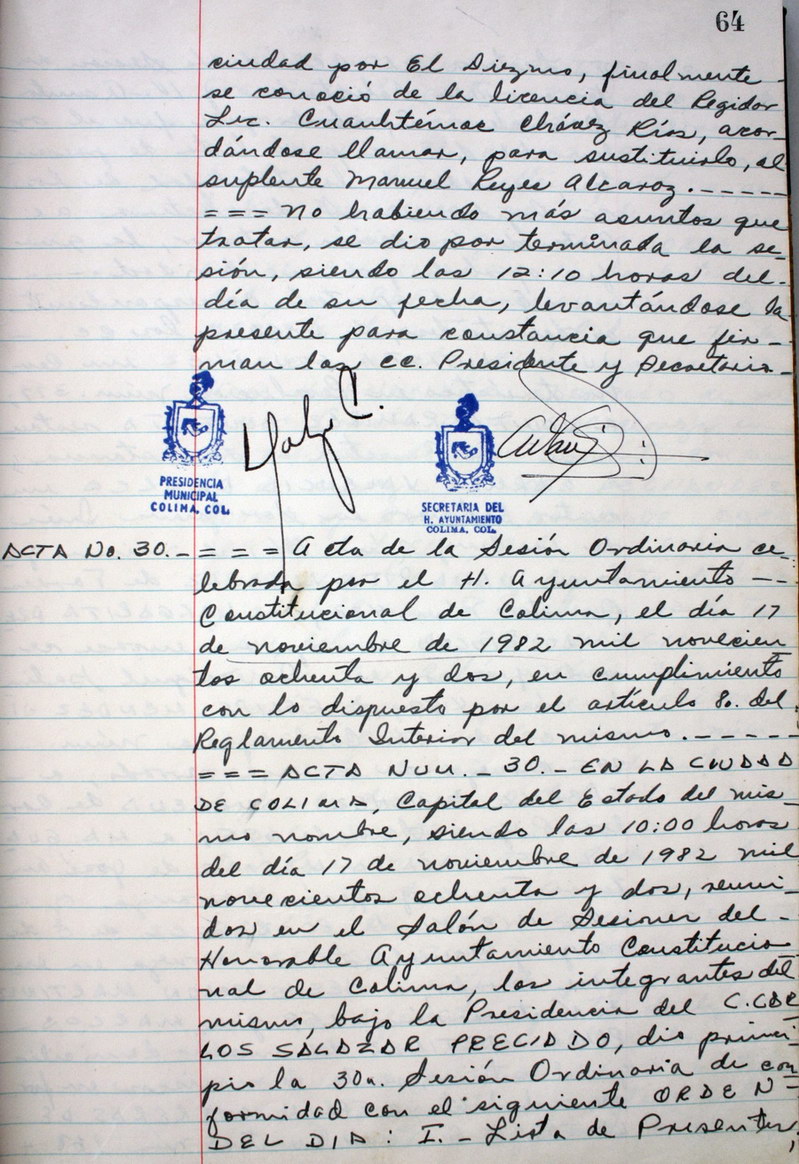 64
ciudad por El Diezmo, finalmente -
se conoció de la licencia del Regidor
Lic. Cuauhtémoc Chávez Ríos, acor-
dándose llamar, para sustituirlo, al
suplente Manuel Reyes Alcaroz. - - - - -
= = = No habiendo más asuntos que
tratar, se dio por terminada la se-
sión, siendo las 12:10 horas del -
día de su fecha, levantándose la
presente para constancia que fir-
man los CC. Presidente y Secretario -
PRESIDENCIA
MUNICIPAL
COLIMA, COL.
SECRETARIA DEL
H. AYUNTAMIENTO
COLIMA, COL.
ACTA No. 30. - = = = Acta de la Sesión Ordinaria ce-
lebrada por el H. Ayuntamiento - -
Constitucional de Colima, el día 17
de noviembre de 1982 mil novecien
tos ochenta y dos, en cumplimiento
con lo dispuesto por el artículo 8o. del
Reglamento Interior del mismo. - - - - -
= = = ACTA NUM. - 30. - EN LA CIUDAD
DE COLIMA, Capital del Estado del mis-
mo nombre, siendo las 10:00 horas
del día 17 de noviembre de 1982 mil
novecientos ochenta y dos, reuni-
dos en el Salón de Sesiones del -
Honorable Ayuntamiento Constitucio
nal de Colima, los integrantes del
mismo, bajo la Presidencia del C. CAR
LOS SALAZAR PRECIADO, dio princi-
pio la 30a. Sesión Ordinaria de con
formidad con el siguiente ORDEN -
DEL DIA: I. - Lista de Presentes,